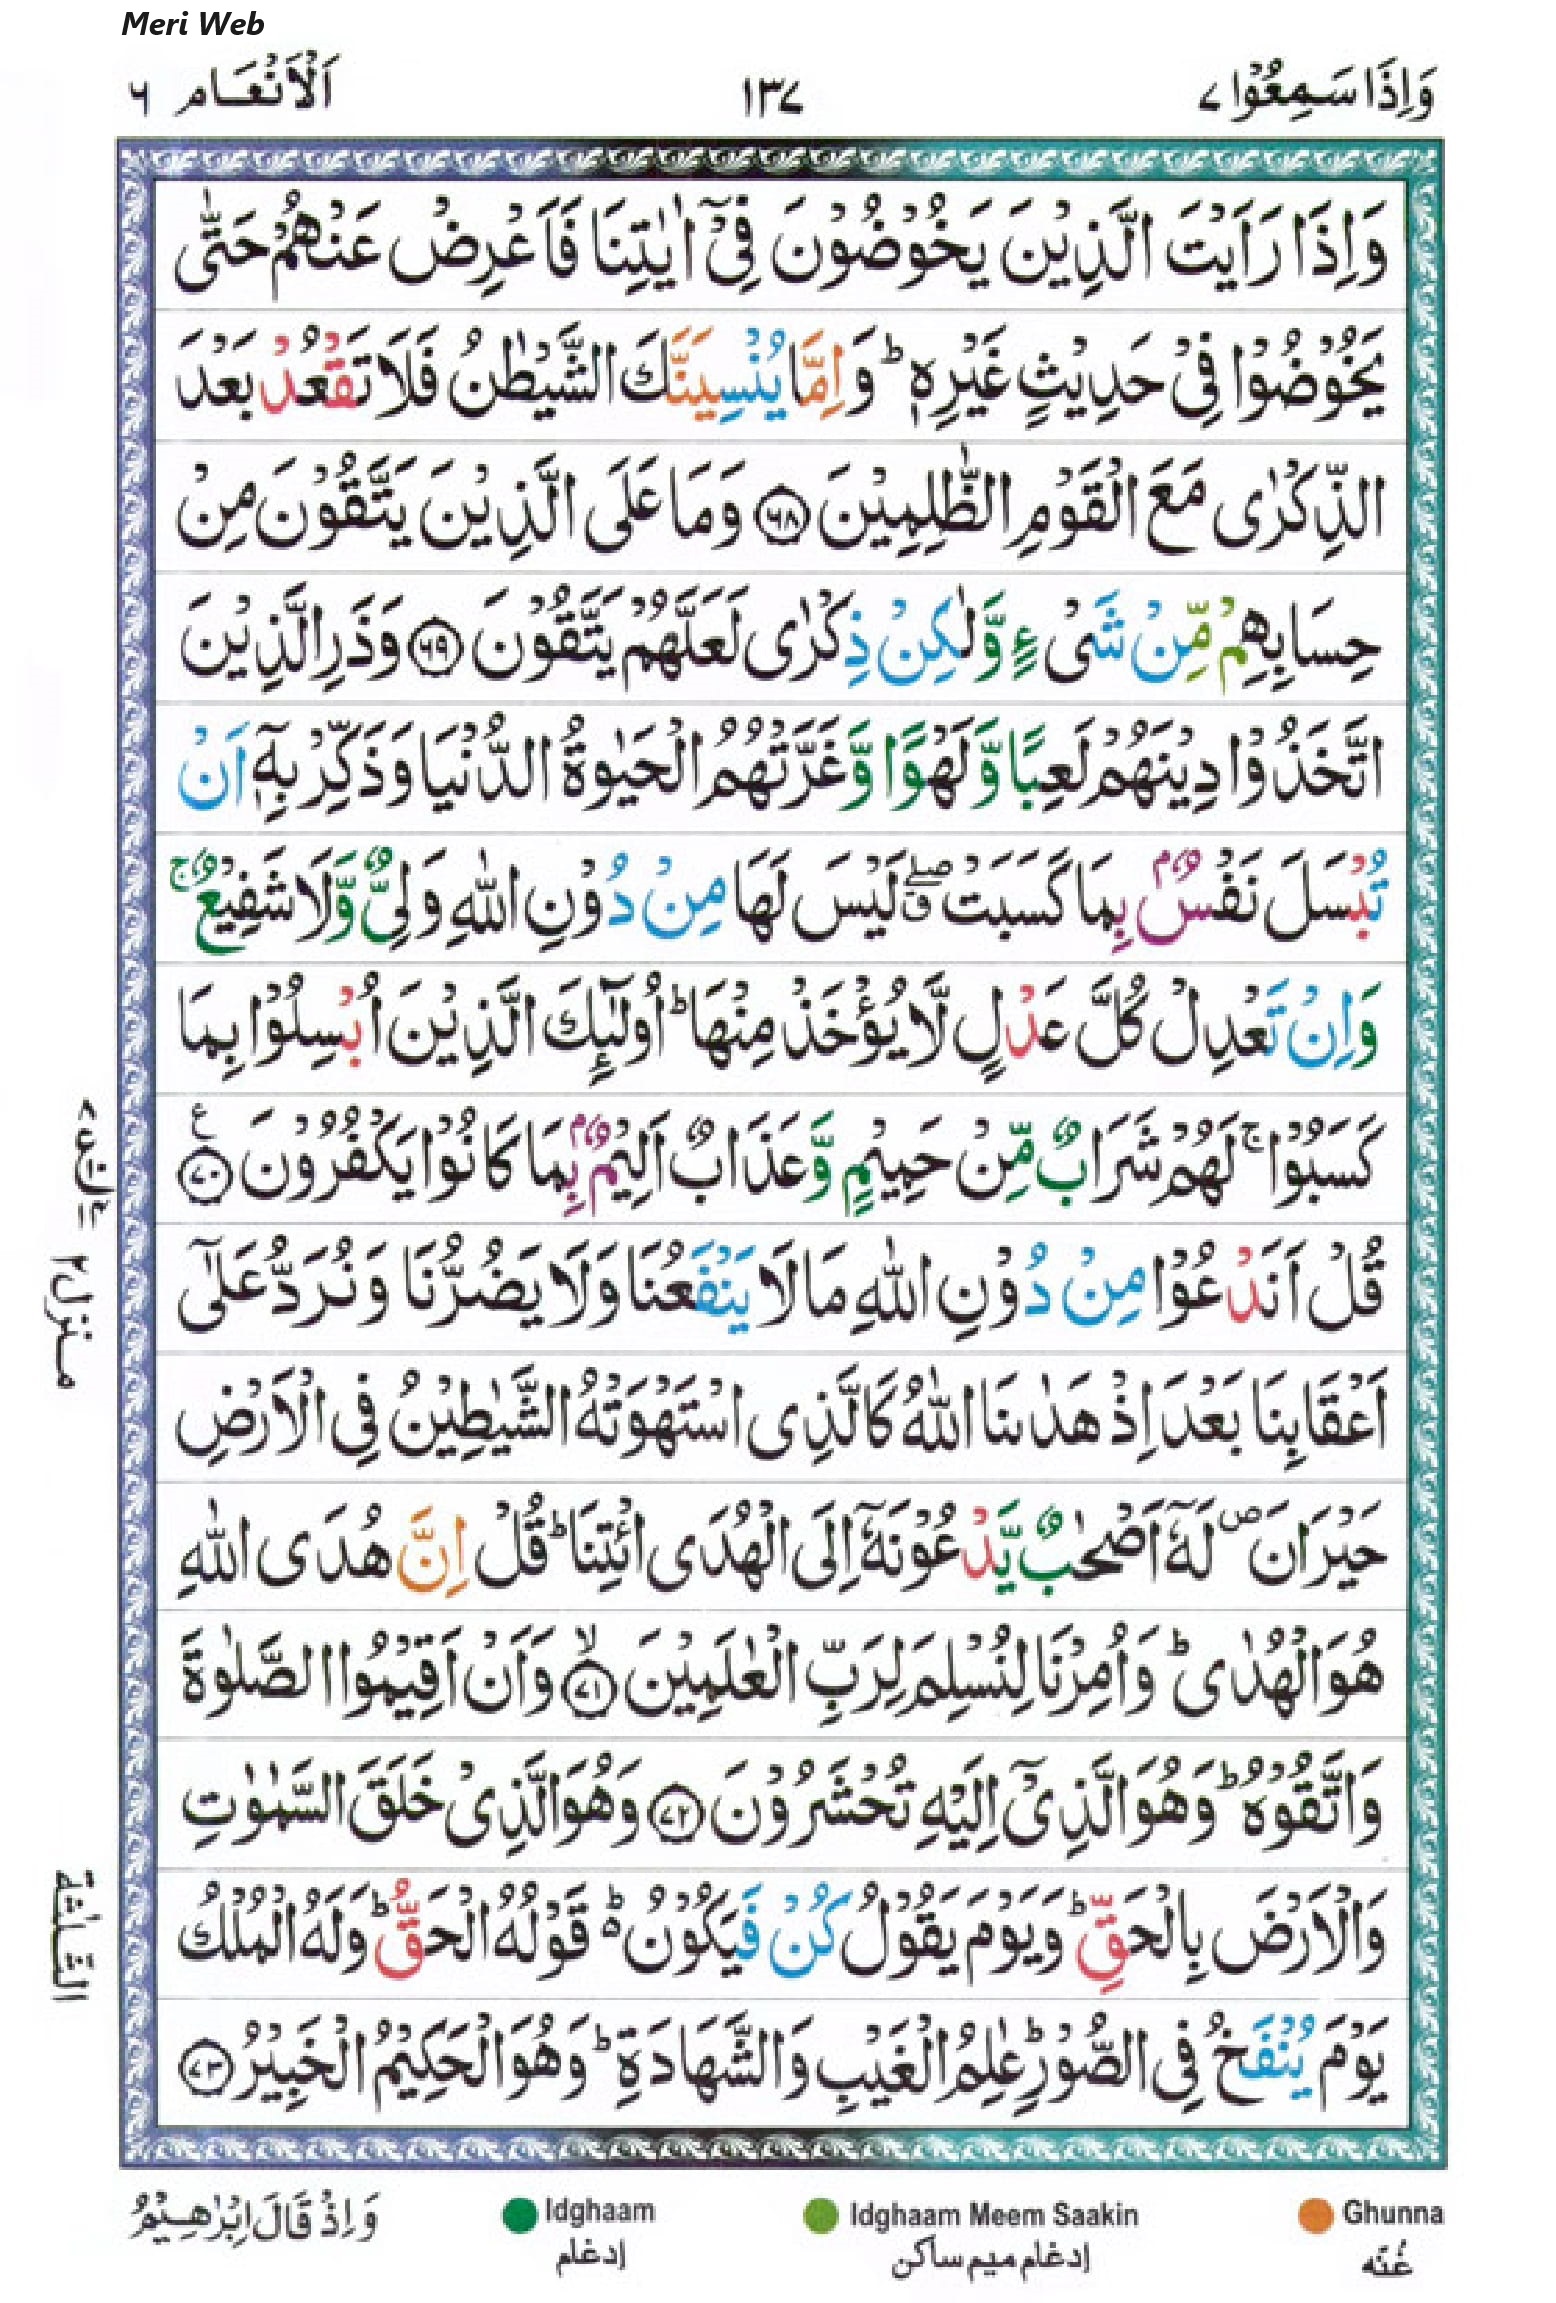 Meri Web
وَاِذَا سَمِعُوۡا ٧
١٣٧
اَلۡاَنۡعَام ٦
وَاِذَا رَاَيۡتَ الَّذِيۡنَ يَخُوۡضُوۡنَ فِىۡۤ اٰيٰتِنَا فَاَعۡرِضۡ عَنۡهُمۡ حَتّٰى
يَخُوۡضُوۡا فِىۡ حَدِيۡثٍ غَيۡرِهٖ‌ؕ وَاِمَّا يُنۡسِيَنَّكَ الشَّيۡطٰنُ فَلَا تَقۡعُدۡ بَعۡدَ
الذِّكۡرٰى مَعَ الۡقَوۡمِ الظّٰلِمِيۡنَ ﴿۶۸﴾ وَمَا عَلَى الَّذِيۡنَ يَتَّقُوۡنَ مِنۡ
حِسَابِهِمۡ مِّنۡ شَىۡءٍ وَّلٰكِنۡ ذِكۡرٰى لَعَلَّهُمۡ يَتَّقُوۡنَ ﴿۶۹﴾ وَذَرِ الَّذِيۡنَ
اتَّخَذُوۡا دِيۡنَهُمۡ لَعِبًا وَّلَهۡوًا وَّغَرَّتۡهُمُ الۡحَيٰوةُ الدُّنۡيَا وَذَكِّرۡ بِهٖۤ اَنۡ
تُبۡسَلَ نَفۡسٌۢ بِمَا كَسَبَتۡۖ ق لَيۡسَ لَهَا مِنۡ دُوۡنِ اللّٰهِ وَلِىٌّ وَّلَا شَفِيۡعٌ‌ ۚ
وَاِنۡ تَعۡدِلۡ كُلَّ عَدۡلٍ لَّا يُؤۡخَذۡ مِنۡهَا‌ ؕ اُولٰٓٮِٕكَ الَّذِيۡنَ اُبۡسِلُوۡا بِمَا
كَسَبُوۡا‌ ۚ لَهُمۡ شَرَابٌ مِّنۡ حَمِيۡمٍ وَّعَذَابٌ اَلِيۡمٌۢ بِمَا كَانُوۡا يَكۡفُرُوۡنَ ﴿۷۰﴾ ع
قُلۡ اَنَدۡعُوۡا مِنۡ دُوۡنِ اللّٰهِ مَا لَا يَنۡفَعُنَا وَلَا يَضُرُّنَا وَنُرَدُّ عَلٰٓى
اَعۡقَابِنَا بَعۡدَ اِذۡ هَدٰٮنَا اللّٰهُ كَالَّذِى اسۡتَهۡوَتۡهُ الشَّيٰطِيۡنُ فِى الۡاَرۡضِ
حَيۡرَانَ ۖ لَهٗۤ اَصۡحٰبٌ يَّدۡعُوۡنَهٗۤ اِلَى الۡهُدَى ائۡتِنَا ‌ؕ قُلۡ اِنَّ هُدَى اللّٰهِ
هُوَ الۡهُدٰى‌ ؕ وَاُمِرۡنَا لِنُسۡلِمَ لِرَبِّ الۡعٰلَمِيۡنَۙ ﴿۷۱﴾ وَاَنۡ اَقِيۡمُوا الصَّلٰوةَ
وَاتَّقُوۡهُ‌ ؕ وَهُوَ الَّذِىۡۤ اِلَيۡهِ تُحۡشَرُوۡنَ ﴿۷۲﴾ وَهُوَ الَّذِىۡ خَلَقَ السَّمٰوٰتِ
وَالۡاَرۡضَ بِالۡحَقِّ‌ؕ وَيَوۡمَ يَقُوۡلُ كُنۡ فَيَكُوۡنُ ‌ؕ قَوۡلُهُ الۡحَقُّ‌ ؕ وَلَهُ الۡمُلۡكُ
يَوۡمَ يُنۡفَخُ فِى الصُّوۡرِ‌ ؕ عٰلِمُ الۡغَيۡبِ وَالشَّهَادَةِ‌ ؕ وَهُوَ الۡحَكِيۡمُ الۡخَبِيۡرُ ﴿۷۳﴾
منزل ٢
الثلٰثة
Ghunna
غُنّه
Idghaam Meem Saakin
إدغام ميم ساكن
Idghaam
إدغام
وَاِذۡ قَالَ اِبۡرٰهِيۡمُ